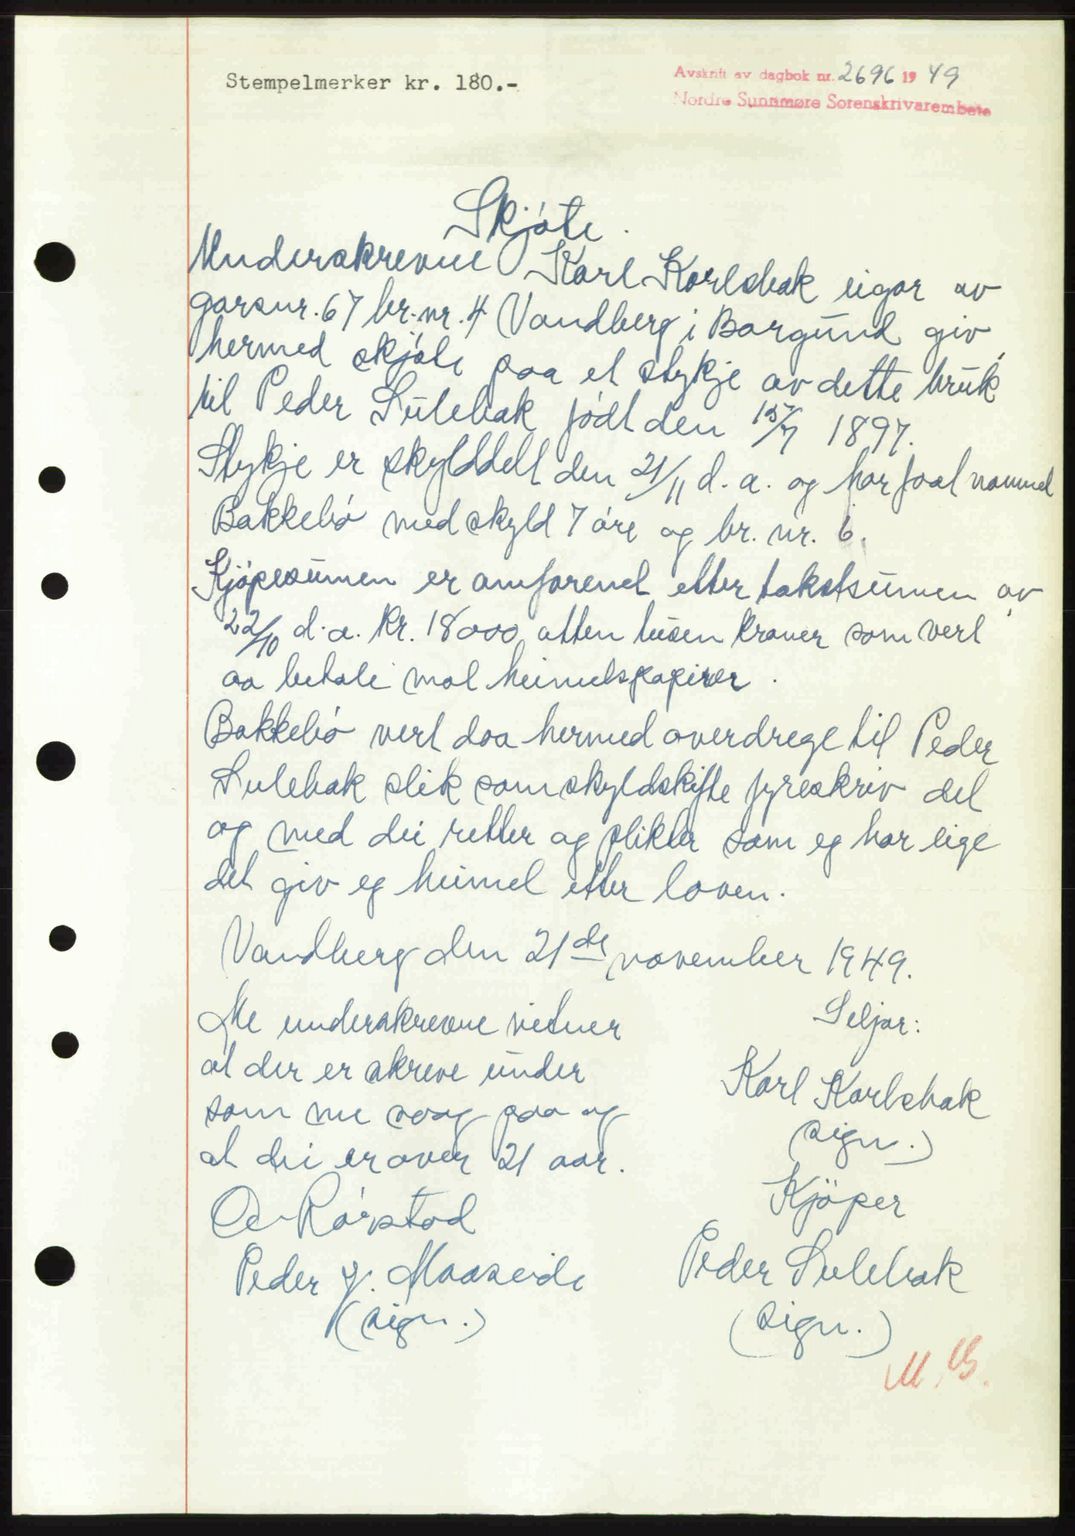 Stempelmerker kr. 180.-
Avskrift av dagbok nr. 2696 19 49
Nordre Sunnmøre Sorenskrivarembete
Skjöte.
Underskrevne Karl Karlsbak eigar av
garsnr. 67 br. nr. 4 Vandberg i Borgund giv
hermed skjöte paa et stykje av dette bruk
til Peder Sulebak födt den 15/7 1897.
Stykje er skylddelt den 21/11 d. a. og har faat namnet
Bakkebö med skyld 7 öre og br. nr. 6.
Kjöpesumen er omforenet etter takstsumen av
22/10 d. a. kr. 18000, atten tusen kroner som vert
aa betale mot heimelspapirer.
Bakkebö vert daa hermed overdrege til Peder
Sulebak slik som skyldskifte fyreskriv det
og med dei retter og plikter som eg har eige
det giv eg heimel etter loven.
Vandberg den 21de november 1949.
Me underskrevne vitner
at der er skreve under
som me saag paa og
at dei er over 21 aar.
Rörstad
Peder J. Maaseide
(sign.)
Seljar:
Karl Karlsbak
(sign.)
Kjöper
Peder Sulebak
(sign.)
M. B.